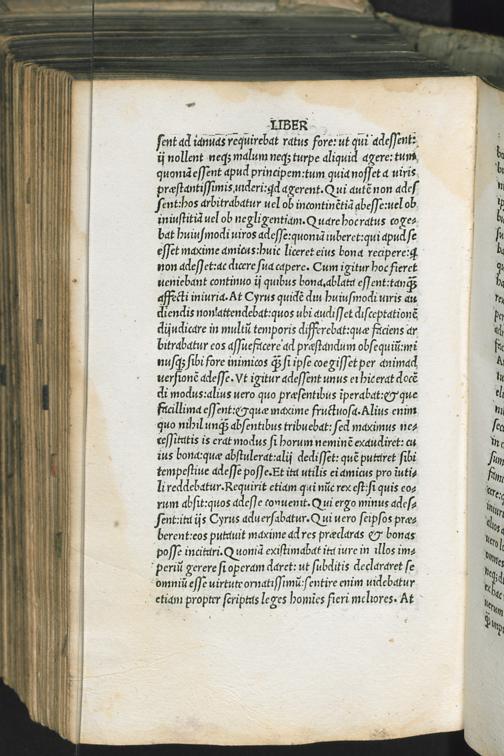 LIBER
sent ad ianuas requirebat ratus fore: ut qui adessent:
ij nollent neqꝫ malum neqꝫ turpe aliquid agere: tum
quoniã essent apud principem: tum quia nosset a uiris
præstantissimis, uideri: qd agerent. Qui autẽ non ades
sent: hos arbitrabatur uel ob incontinẽtiã abesse: uel ob
iniustitiã uel ob negligentiam. Quare hoc ratus coge-
bat huiusmodi uiros adesse: quoniã iuberet: qui apud se
esset maxime amicus: huic liceret eius bona recipere: q
non adesset: ac dicere sua capere. Cum igitur hoc fieret
ueniebant continuo ij quibus bona, ablata essent: tanqꝫ
affecti iniuria. At Cyrus quidẽ diu huiusmodi uiris au
diendis non attendebat: quos ubi audisset disceptationẽ
dijudicare in multũ temporis differebat: quæ faciens ar
bitrabatur eos assuefacere ad præstandum obsequiũ: mi
nusqꝫ sibi fore inimicos q̃ꝫ si ipse coegisset per animad
uersionẽ adesse. Vt igitur adessent unus ei hic erat docẽ
di modus: alius uero quo præsentibus ĩperabat: & que
facillima essent: & quæ maxime fructuosa. Alius enim
quo nihil unqꝫ absentibus tribuebat: sed maximus ne-
cessitatis is erat modus si horum neminẽ exaudiret: cu
ius bona: quæ abstulerat: alij dedisset: quẽ putaret sibi
tempestiue adesse posse. Et ita utilis ei amicus pro iuti-
li reddebatur. Requirit etiam qui nũc rex est: si quis eo-
rum absit: quos adesse conuenit. Qui ergo minus ades-
sent: ita ijs Cyrus aduersabatur. Qui uero seipsos præ-
berent: eos putauit maxime ad res præclaras & bonas
posse incitari. Quoniã existimabat ita iure in illos im-
periũ gerere si operam daret: ut subditis declararet se
omniũ esse uirtute ornatissimũ: sentire enim uidebatur
etiam propter scriptas leges homĩes fieri meliores. At